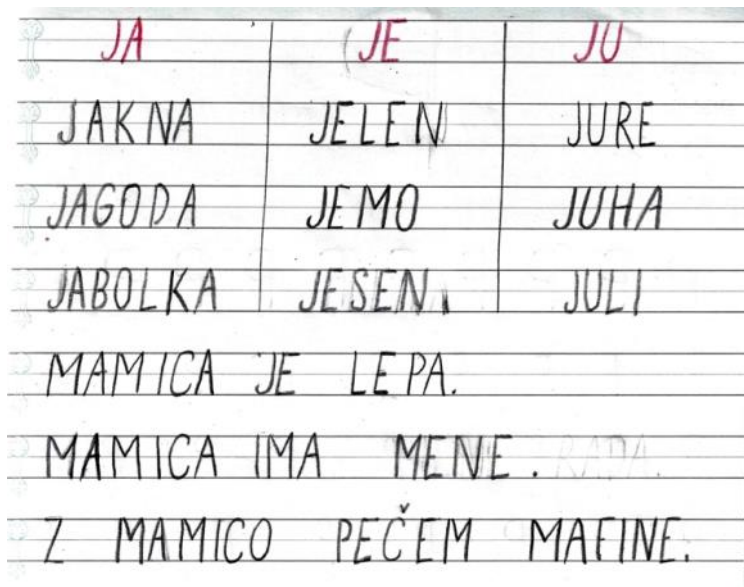 JA JE JU
JAKNA JELEN JURE
JAGODA JEMO JUHA
JABOLKA JESEN JULI
MAMICA JE LEPA.
MAMICA IMA MENE. RADA.
Z MAMICO PEČEM MAFINE.